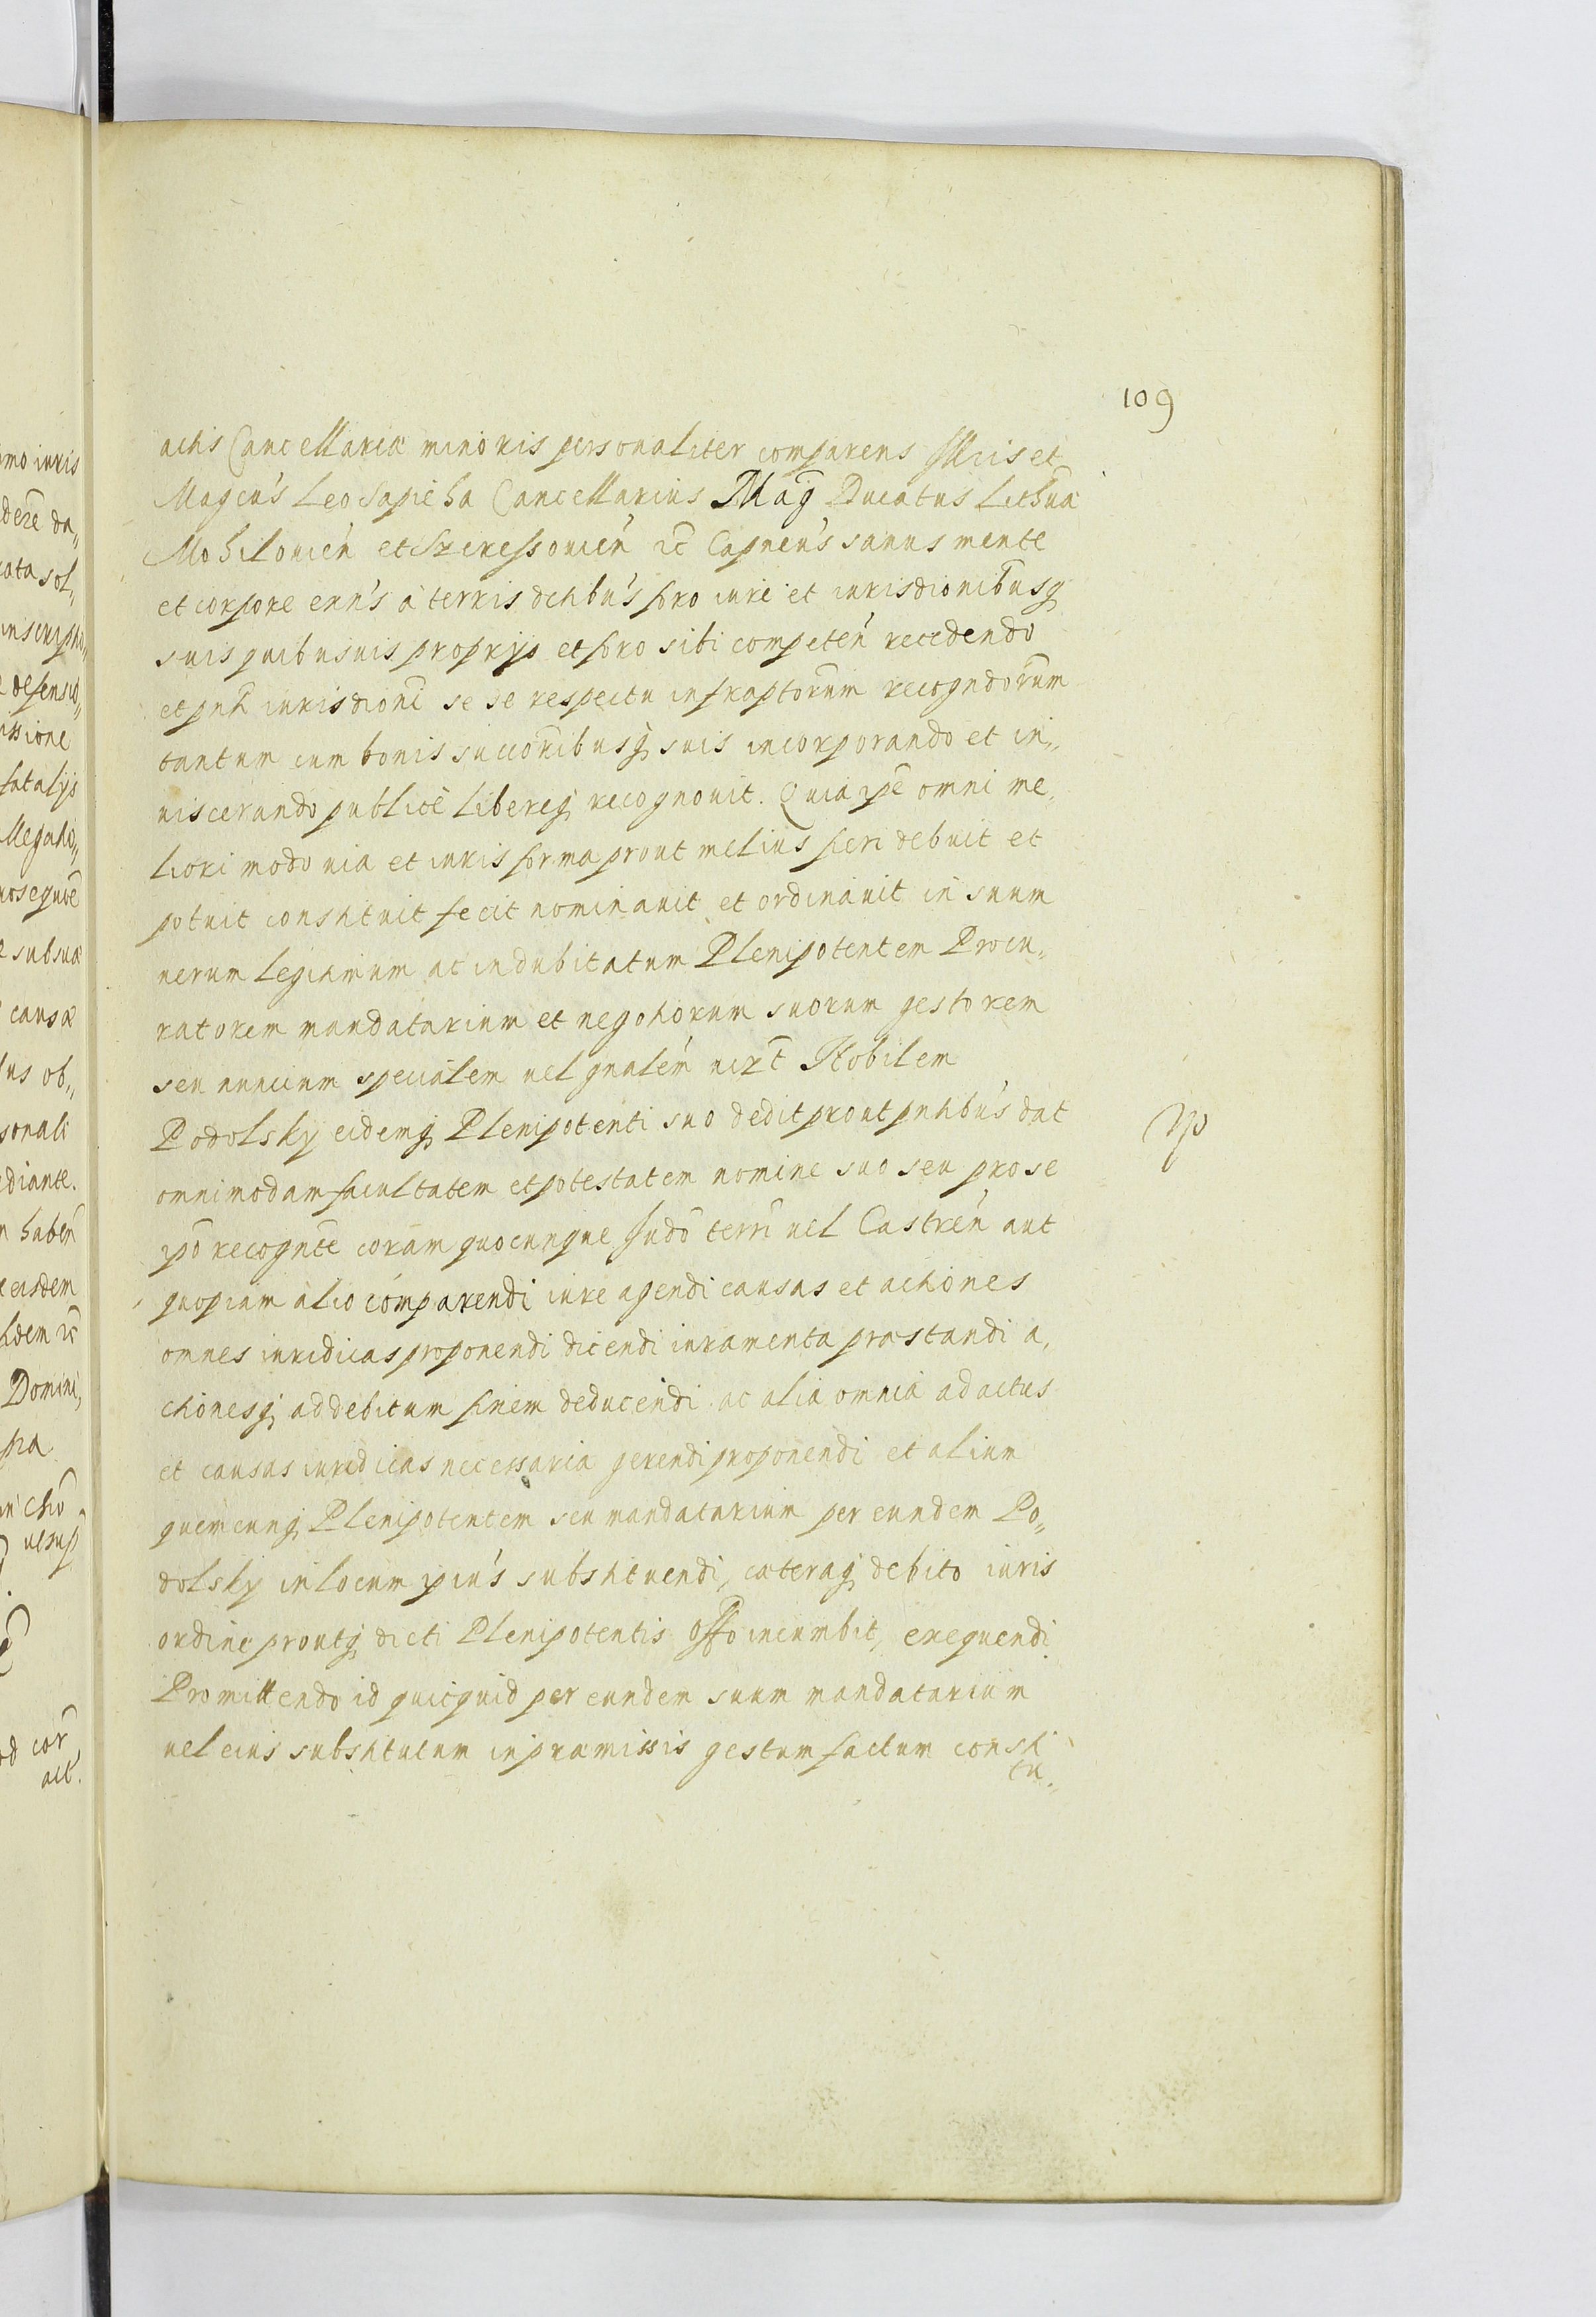 109
actis Cancellariæ minoris personaliter comparens Illris et
Magcus Leo Sapieha Cancellarius Mag Ducatus Lithua
Mohilouien et Szereszouien etc Capneus sanus mente
et corpore exns a terris dchbus foro iure et iurisdionibusq
suis quibusuis proprijs et foro sibi competen recedendo
et pnti iurisdioni se se respectu infraptorum recogndorum
tantum cum bonis succoribusq suis incorporando et in„
uiscerando publice libereq recognouit. Quia ipe omni me„
liori modo uia et iuris forma prout melius fieri debuit et
potuit constituit fecit nominauit et ordinauit in suum
uerum legitimum ac indubitatum Plenipotentem Procu„
ratorem mandatarium et negotiorum suorum gestorem
seu nuncium specialem uel gnalem uirt Nobilem
Podolsky eidemq Plenipotenti suo dedit prout pntibus dat
Np
omnimodam facultatem et potestatem nomine suo seu pro se
ipo recognte coram quocunque Judo terri uel Castren aut
quopiam alio comparendi iure agendi causas et actiones
omnes iuridicas proponendi dicendi iuramenta præstandi a„
ctionesq ad debitum finem deducendi ac alia omnia ad actus
et causas iuridicas necessaria gerendi proponendi et alium
quemcunq Plenipotentem seu mandatarium per eundem Po„
dolsky in locum ipius substituendi, cæteraq debito iuris
ordine proutq dicti Plenipotentis offo incumbit, exequendi.
Promittendo id quicquid per eundem suum mandatarium
uel eius substitutum in præmissis gestum factum consti
tu„